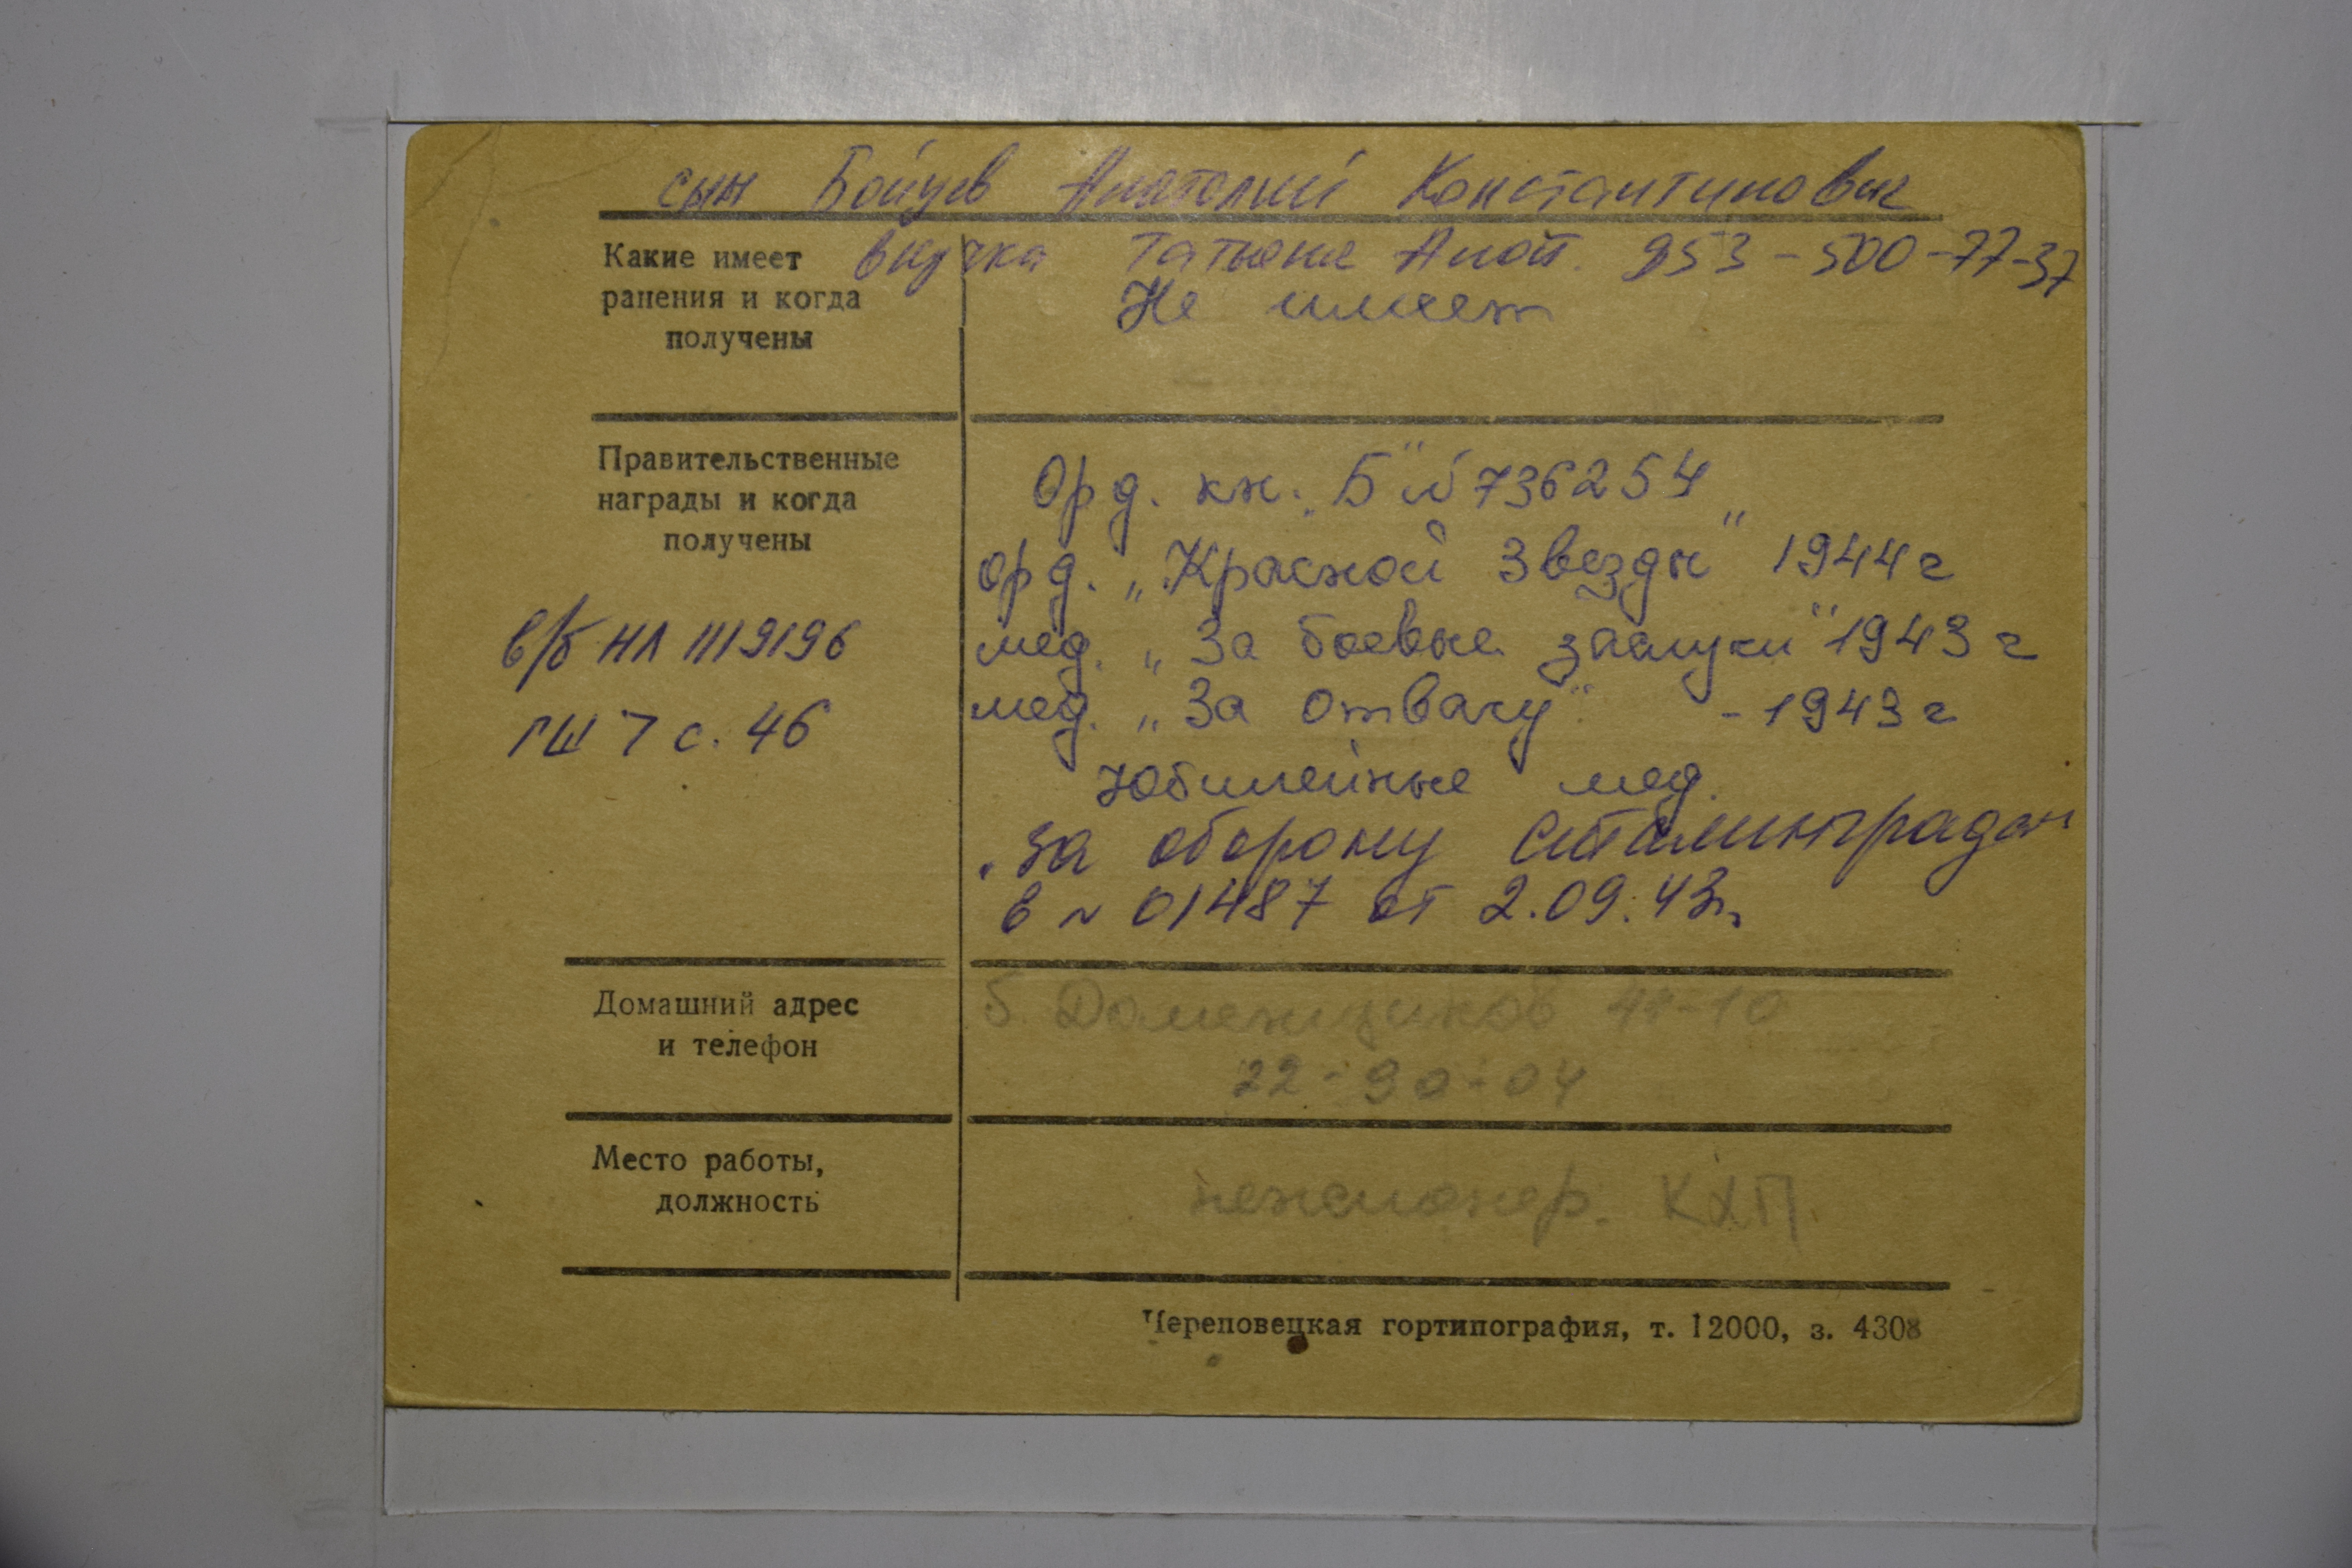 сын Бойцев Анатолий Константинович
внучка Татьяна Анат. 953-500-77-37
Какие имеет
ранения и когда
получены
Не имеет
Правительственные
награды и когда
получены
Орд. кн. „Б" № 736254
орд. „Красной Звезды" 1944 г
мед. „За боевые заслуги" 1943 г
мед. „За отвагу" - 1943 г
Юбилейные мед.
„За оборону Сталинграда"
в № 01487 от 2.09.43 г.
в/б НЛ 1119196
ГШ 7 с. 46
Домашний адрес
и телефон
б. Доменщиков 48-10
22-90-04
Место работы,
должность
пенсионер. КХП.
Череповецкая гортипография, т. 12000, з. 4308